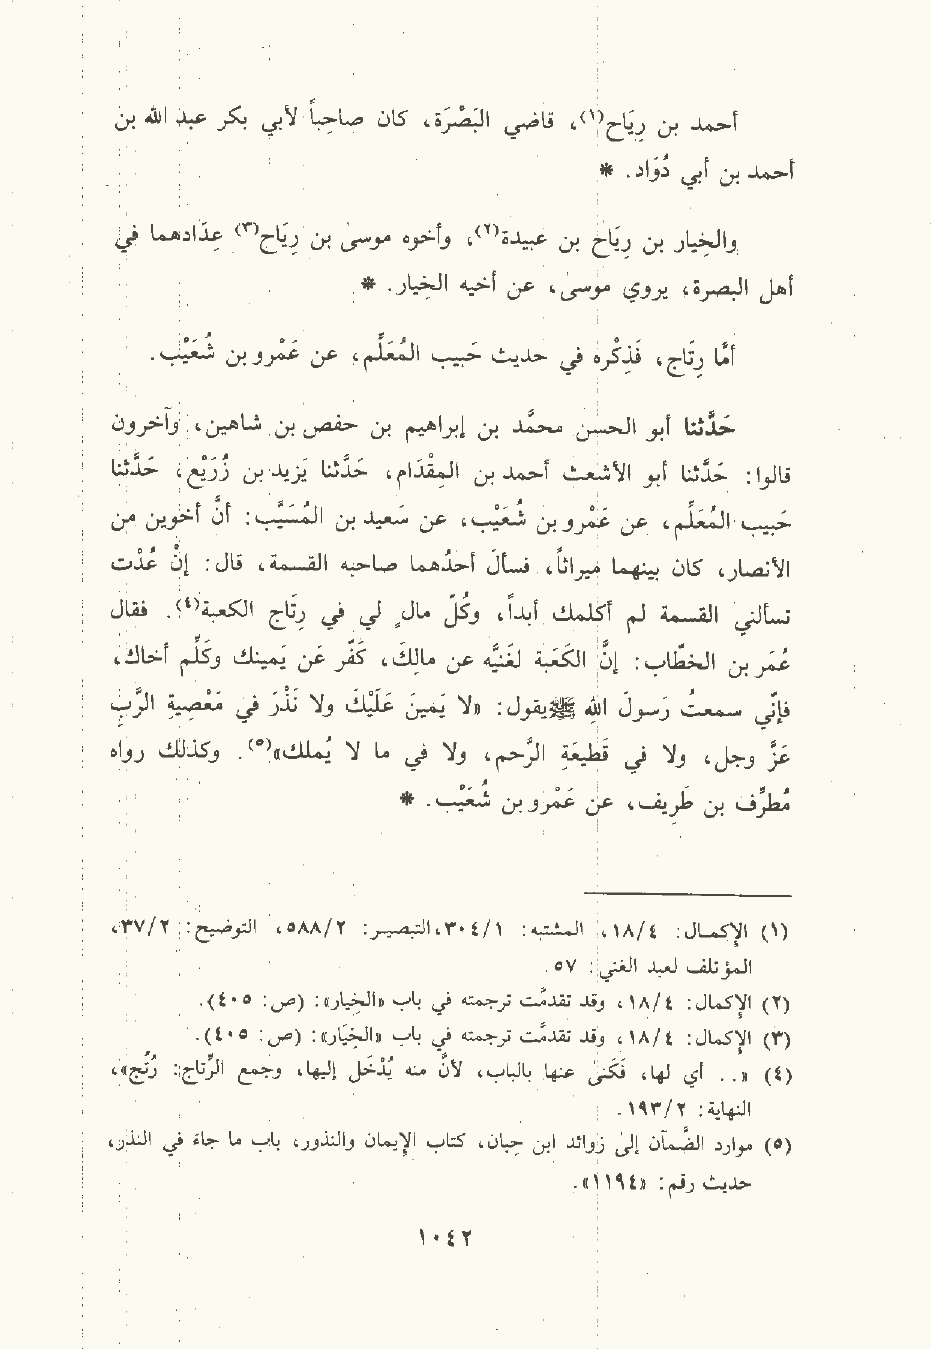 أحمد بن رِيَاح(١)، قاضي البَصْرَة، كان صاحِباً لأبي بكر عبد الله بن
أحمد بن أبي دُوَاد. *
والخِيار بن رِيَاح بن عبيدة(٢)، وأخوه موسىٰ بن رِيَاح(٣) عِدَادهما في
أهل البصرة، يروي موسىٰ، عن أخيه الخِيار. *
أمَّا رِتَاج، فَذِكْره في حديث حَبيب المُعَلِّم، عن عَمْرو بن شُعَيْب.
حَدَّثنا أبو الحسن محمَّد بن إبراهيم بن حفص بن شاهين، وآخرون
قالوا: حَدَّثنا أبو الأشعث أحمد بن المِقْدَام، حَدَّثنا يَزيد بن زُرَيْع، حَدَّثنا
حَبيب المُعَلِّم، عن عَمْرو بن شُعَيْب، عن سَعيد بن المُسَيَّب: أنَّ أخوين من
الأنصار، كان بينهما ميراثاً، فسألَ أحدُهما صاحبه القسمة، قال: إنْ عُدْت
تسألني القسمة لم أكلمك أبداً، وكُلّ مال لي في رِتَاج الكعبة(٤). فقال
عُمَر بن الخطَّاب: إنَّ الكَعبَة لغَنيَّه عن مالِكَ، كَفِّر عَن يَمينك وكلِّم أخاك،
فإنِّي سمعتُ رَسولَ الله ﷺ يقول: «لا يَمينَ عَلَيْكَ ولا نَذْرَ في مَعْصِيةِ الرَّبِّ
عَزَّ وجل، ولا في قَطيعَةِ الرَّحم، ولا في ما لا يُملك»(٥). وكذلك رواه
مُطرِّف بن طَرِيف، عن عَمْرو بن شُعَيْب. *
(١) الإكمال: ١٨/٤، المشتبه: ٣٠٤/١، التبصير: ٥٨٨/٢، التوضيح: ٣٧/٢،
المؤتلف لعبد الغني: ٥٧.
(٢) الإكمال: ١٨/٤، وقد تقدَّمت ترجمته في باب «الخِيار»: (ص: ٤٠٥).
(٣) الإكمال: ١٨/٤، وقد تقدَّمت ترجمته في باب «الخِيَار»: (ص: ٤٠٥).
(٤) «.. أي لها، فَكَنىٰ عنها بالباب، لأنَّ منه يُدْخَل إليها، وجمع الرِّتاج: رُتُج»،
النهاية: ١٩٣/٢.
(٥) موارد الضمآن إلىٰ زوائد ابن حِبان، كتاب الإيمان والنذور، باب ما جاء في النذر،
حديث رقم: «١١٩٤».
١٠٤٢